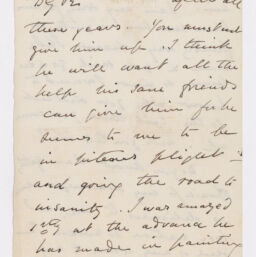 after all
these years. You must not
give him up. I think
he will want all the
help his sane friends
can give him for he
seems to me to be
in piteous plight
and going the road to
insanity. I was amazed
at the advance he
has made in painting